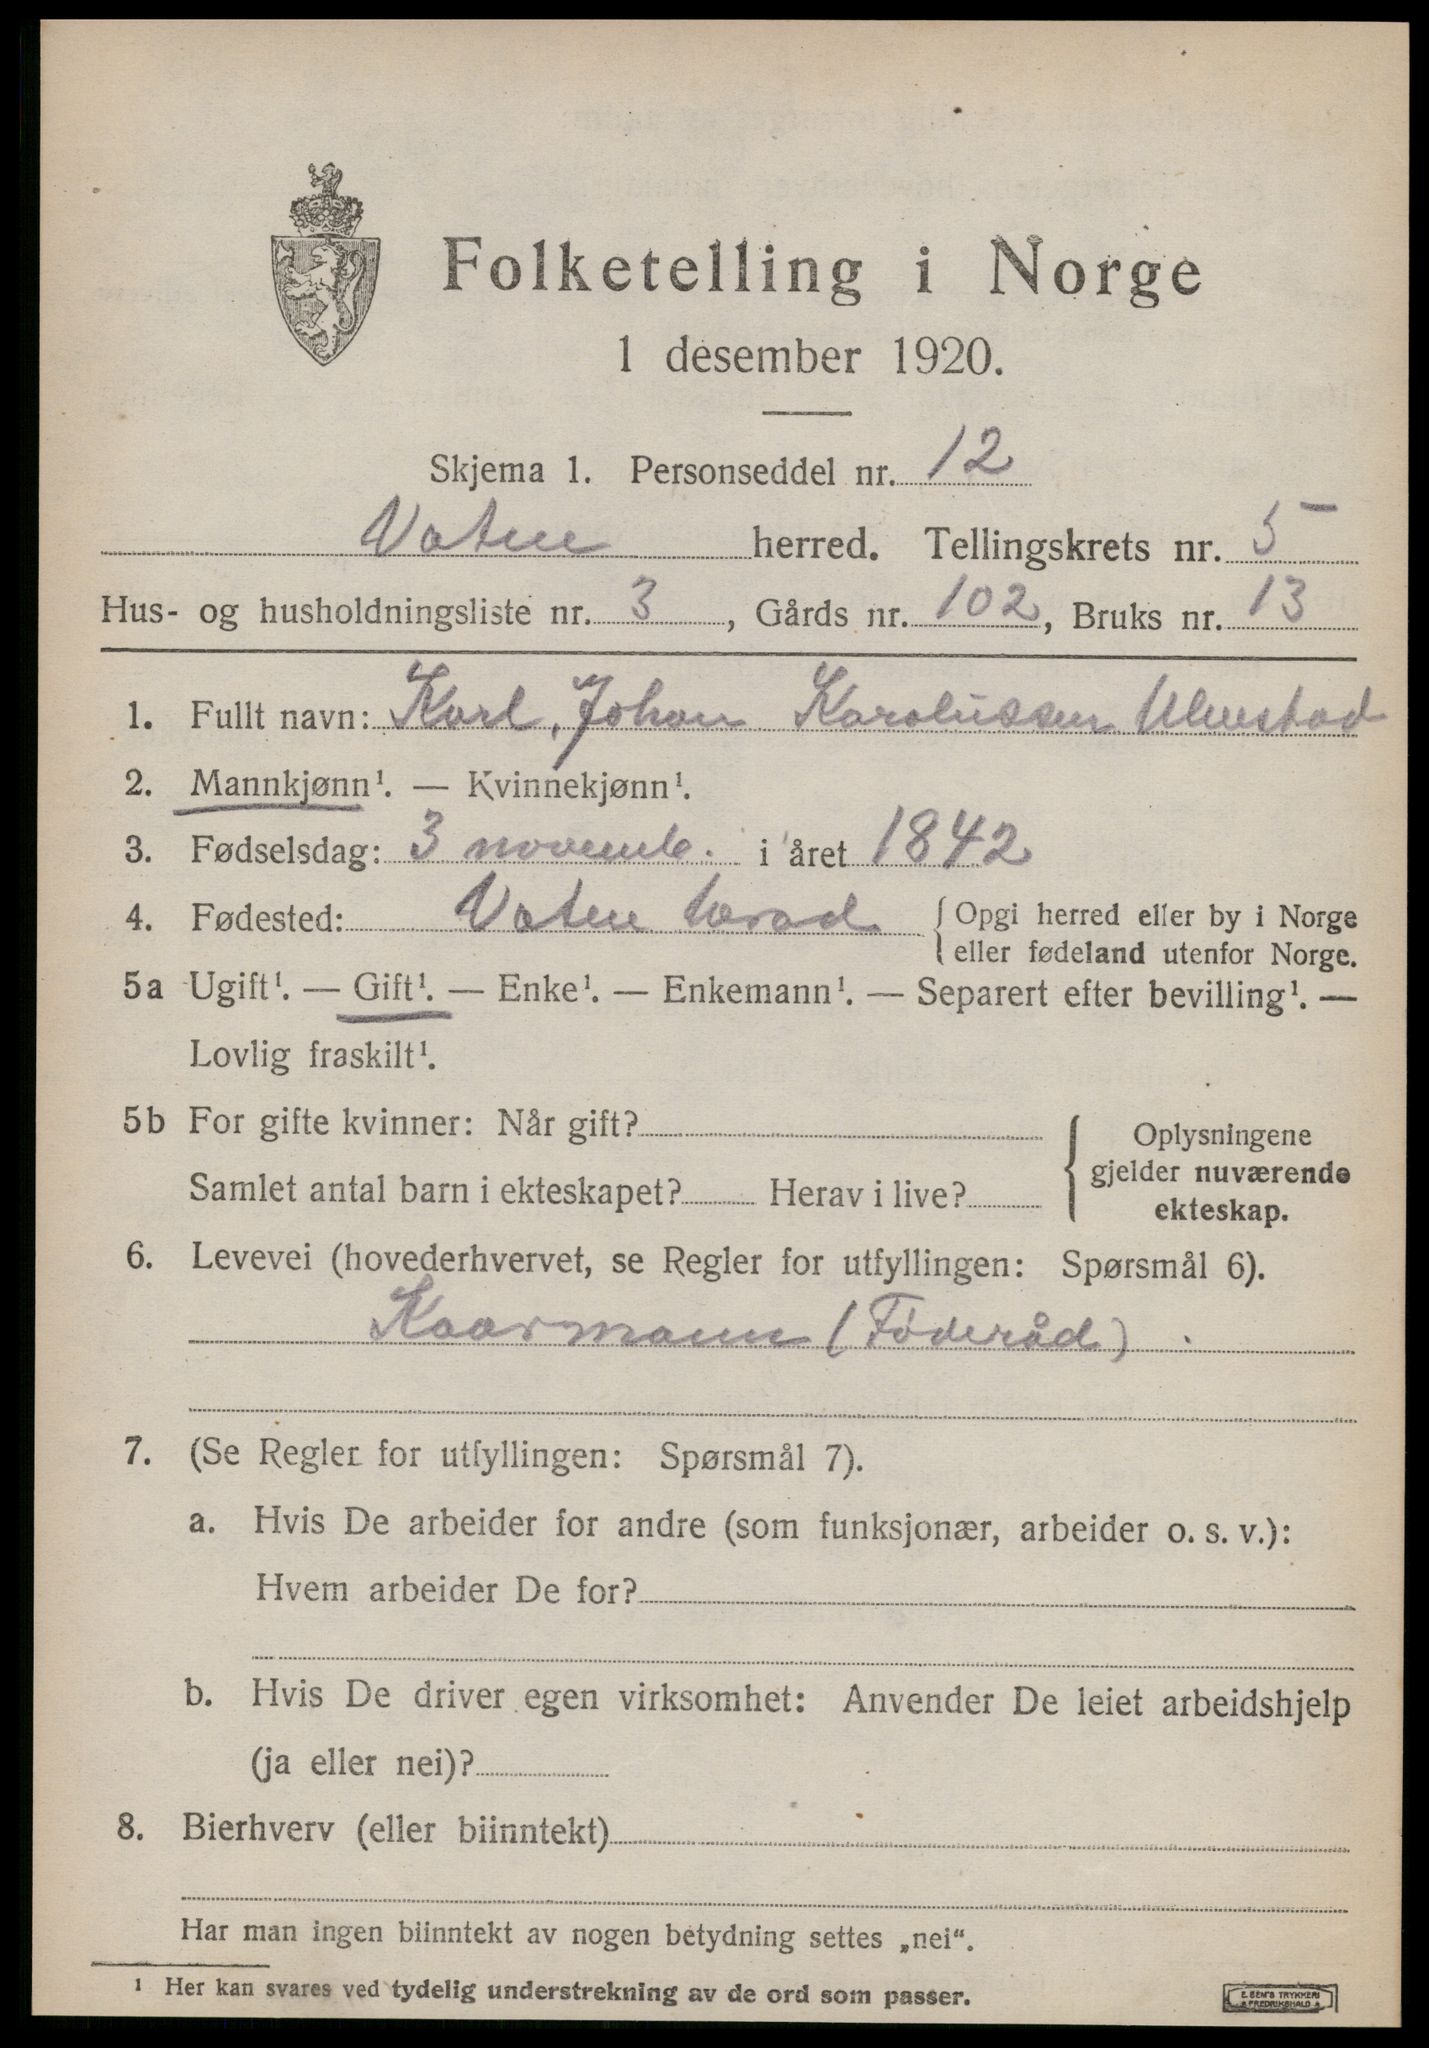 Folketelling i Norge
1 desember 1920.
Skjema 1. Personseddel nr. 12
Vatne herred. Tellingskrets nr. 5
Hus- og husholdningsliste nr. 3, Gårds nr. 102, Bruks nr. 13
1. Fullt navn: Karl, Johan Karolussen Ulvestad
2. Mannkjønn¹. — Kvinnekjønn¹.
3. Fødselsdag: 3 novemb. i året 1842
4. Fødested: Vatne herad { Opgi herred eller by i Norge
eller fødeland utenfor Norge.
5a Ugift¹. — Gift¹. — Enke¹. — Enkemann¹. — Separert efter bevilling¹. —
Lovlig fraskilt¹.
5b For gifte kvinner: Når gift?
Samlet antal barn i ekteskapet? Herav i live?
{ Oplysningene
gjelder nuværende
ekteskap.
6. Levevei (hovederhvervet, se Regler for utfyllingen: Spørsmål 6).
Kaarmann (Föderåd)
7. (Se Regler for utfyllingen: Spørsmål 7).
a. Hvis De arbeider for andre (som funksjonær, arbeider o. s. v.):
Hvem arbeider De for?
b. Hvis De driver egen virksomhet: Anvender De leiet arbeidshjelp
(ja eller nei)?
8. Bierhverv (eller biinntekt)
Har man ingen biinntekt av nogen betydning settes „nei“.
¹ Her kan svares ved tydelig understrekning av de ord som passer.
E. SEM'S TRYKKERI
FREDRIKSHALD